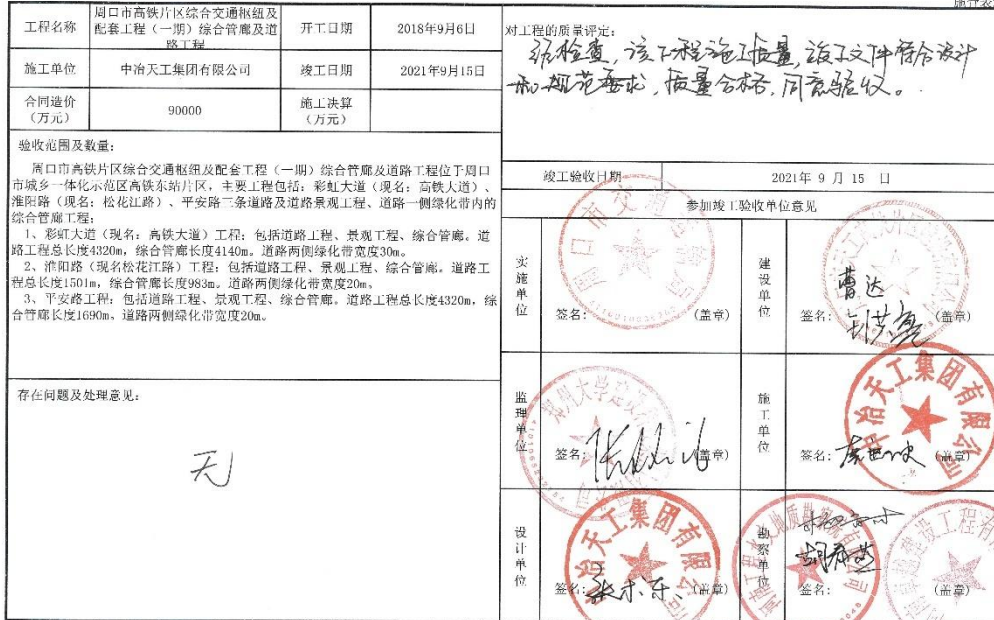 施合表
工程名称
周口市高铁片区综合交通枢纽及
配套工程(一期)综合管廊及道
路工程
开工日期
2018年9月6日
施工单位
中冶天工集团有限公司
竣工日期
2021年9月15日
合同造价
(万元)
90000
施工决算
(万元)
验收范围及数量:
周口市高铁片区综合交通枢纽及配套工程(一期)综合管廊及道路工程位于周口
市城乡一体化示范区高铁东站片区,主要工程包括:彩虹大道(现名:高铁大道)、
淮阳路(现名:松花江路)、平安路三条道路及道路景观工程、道路一侧绿化带内的
综合管廊工程;
1、彩虹大道(现名:高铁大道)工程:包括道路工程、景观工程、综合管廊。道
路工程总长度4320m,综合管廊长度4140m。道路两侧绿化带宽度30m。
2、淮阳路(现名松花江路)工程:包括道路工程、景观工程、综合管廊。道路工
程总长度1501m,综合管廊长度983m。道路两侧绿化带宽度20m。
3、平安路工程:包括道路工程、景观工程、综合管廊。道路工程总长度4320m,综
合管廊长度1690m,道路两侧绿化带宽度20m。
存在问题及处理意见:
无
对工程的质量评定:
经检查,该工程施工质量,竣工文件符合设计
和规范要求,质量合格,同意验收。
竣工验收日期
2021年 9 月 15 日
参加竣工验收单位意见
实施单位
周口市交通
签名:
(盖章)
建设单位
曹达
签名:
(盖章)
监理单位
郑州大学建设
签名:
(盖章)
施工单位
中冶天工集团有限公司
签名:
(盖章)
设计单位
中冶天工集团有限公司
签名:
(盖章)
勘察单位
签名:
(盖章)